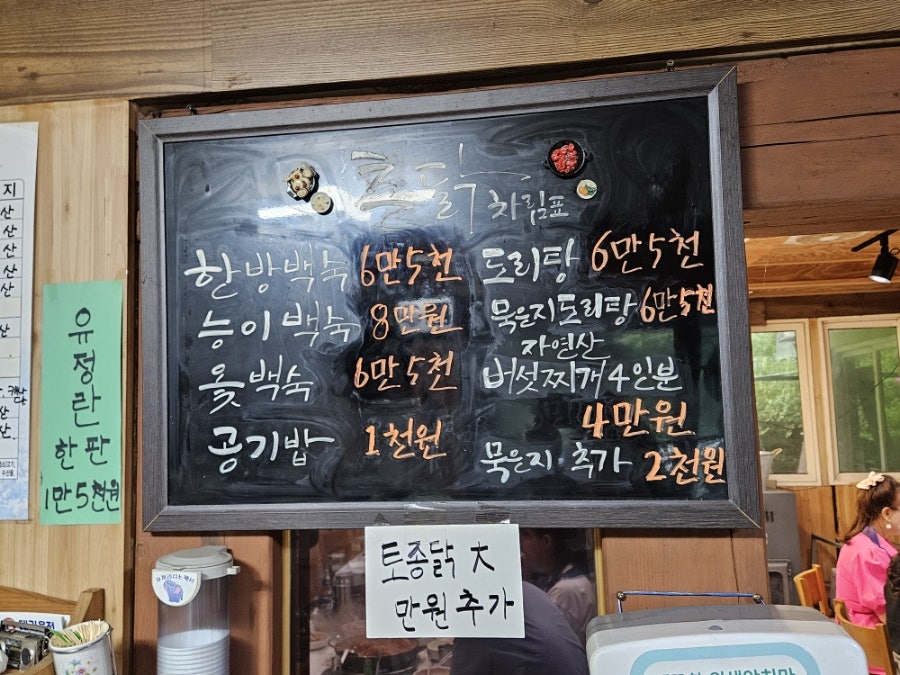 토종닭 차림표
한방백숙 6만5천
능이백숙 8만원
옻백숙 6만5천
공기밥 1천원
도리탕 6만5천
묵은지도리탕 6만5천
자연산
버섯찌개4인분
4만원
묵은지·추가 2천원
유정란
한판
1만5천원
토종닭 大
만원추가
지
산
산
산
산
산
산
산
산